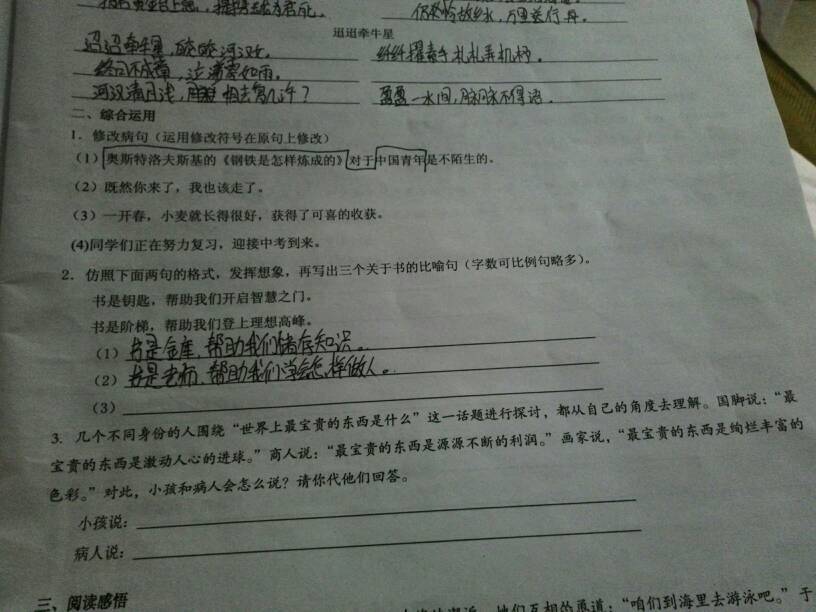 迢迢牵牛星
迢迢牵牛星，皎皎河汉女。 纤纤擢素手，札札弄机杼。
终日不成章，泣涕零如雨。
河汉清且浅，相去复几许？ 盈盈一水间，脉脉不得语。
二、综合运用
1．修改病句（运用修改符号在原句上修改）
（1）奥斯特洛夫斯基的《钢铁是怎样炼成的》对于中国青年是不陌生的。
（2）既然你来了，我也该走了。
（3）一开春，小麦就长得很好，获得了可喜的收获。
(4)同学们正在努力复习，迎接中考到来。
2．仿照下面两句的格式，发挥想象，再写出三个关于书的比喻句（字数可比例句略多）。
书是钥匙，帮助我们开启智慧之门。
书是阶梯，帮助我们登上理想高峰。
（1）书是金库，帮助我们储存知识。
（2）书是老师，帮助我们学会怎样做人。
（3）
3. 几个不同身份的人围绕“世界上最宝贵的东西是什么”这一话题进行探讨，都从自己的角度去理解。国脚说：“最
宝贵的东西是激动人心的进球。”商人说：“最宝贵的东西是源源不断的利润。”画家说，“最宝贵的东西是绚烂丰富的
色彩。”对此，小孩和病人会怎么说？请你代他们回答。
小孩说：
病人说：
三、阅读感悟
他们互相怂恿道：“咱们到海里去游泳吧。”于